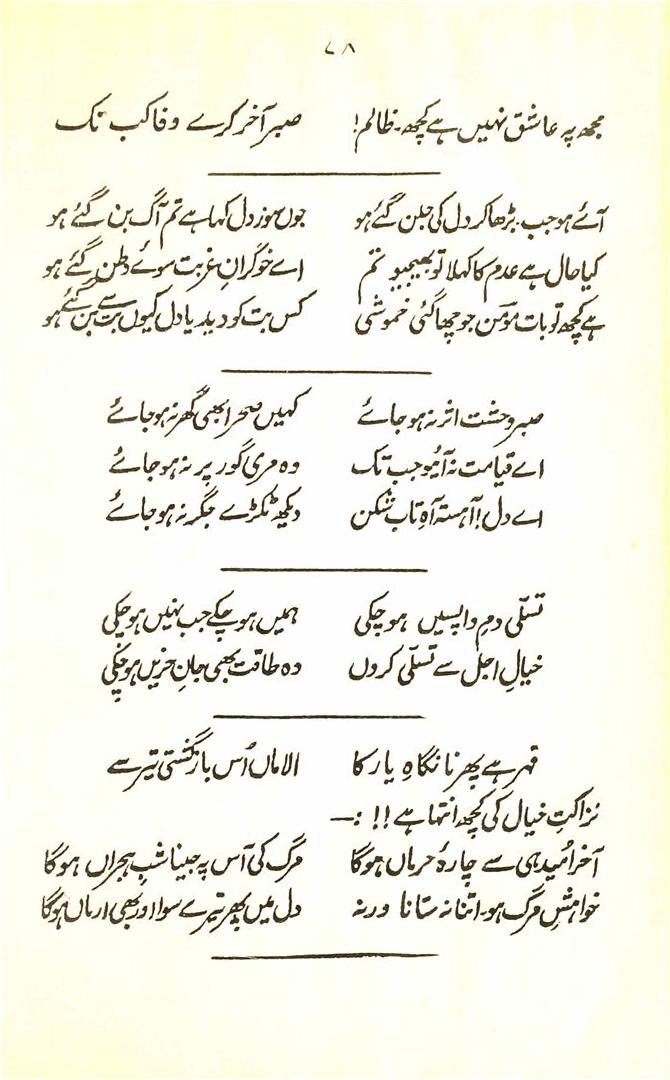 ۷۸
مجھ پہ عاشق نہیں ہے کچھ۔ ظالم! صبر آخر کرے وفا کب تک
آئے ہو جب بڑھا کر دل کی جلن گئے ہو جوں سوز دل کہا ہے تم آگ بن گئے ہو
کیا حال ہے عدم کا کہلا تو بھیجیو تم اے خوگرانِ غربت سوئے وطن گئے ہو
ہے کچھ تو بات مومن جو چھا گئی خموشی کس بت کو دیدیا دل کیوں بت سے بن گئے ہو
صبر وحشت اثر نہ ہو جائے کہیں صحرا بھی گھر نہ ہو جائے
اے قیامت نہ آئیو جب تک وہ مری گور پر نہ ہو جائے
اے دل! آہستہ آہِ تاب شکن دیکھ ٹکڑے جگر نہ ہو جائے
تسلّی دمِ واپسیں ہو چکی ہمیں ہو چکے جب نہیں ہو چکی
خیالِ اجل سے تسلّی کروں وہ طاقت بھی جانِ حزیں ہو چکی
قہر ہے پھرنا نگاہِ یار کا الاماں اُس بازگشتی تیر سے
نزاکتِ خیال کی کچھ انتہا ہے!! :—
آخر اُمید ہی سے چارۂ حرماں ہوگا مرگ کی آس پہ جینا شبِ ہجراں ہوگا
خواہشِ مرگ ہو۔ اتنا نہ ستانا ورنہ دل میں پھر تیرے سوا اور بھی ارماں ہوگا